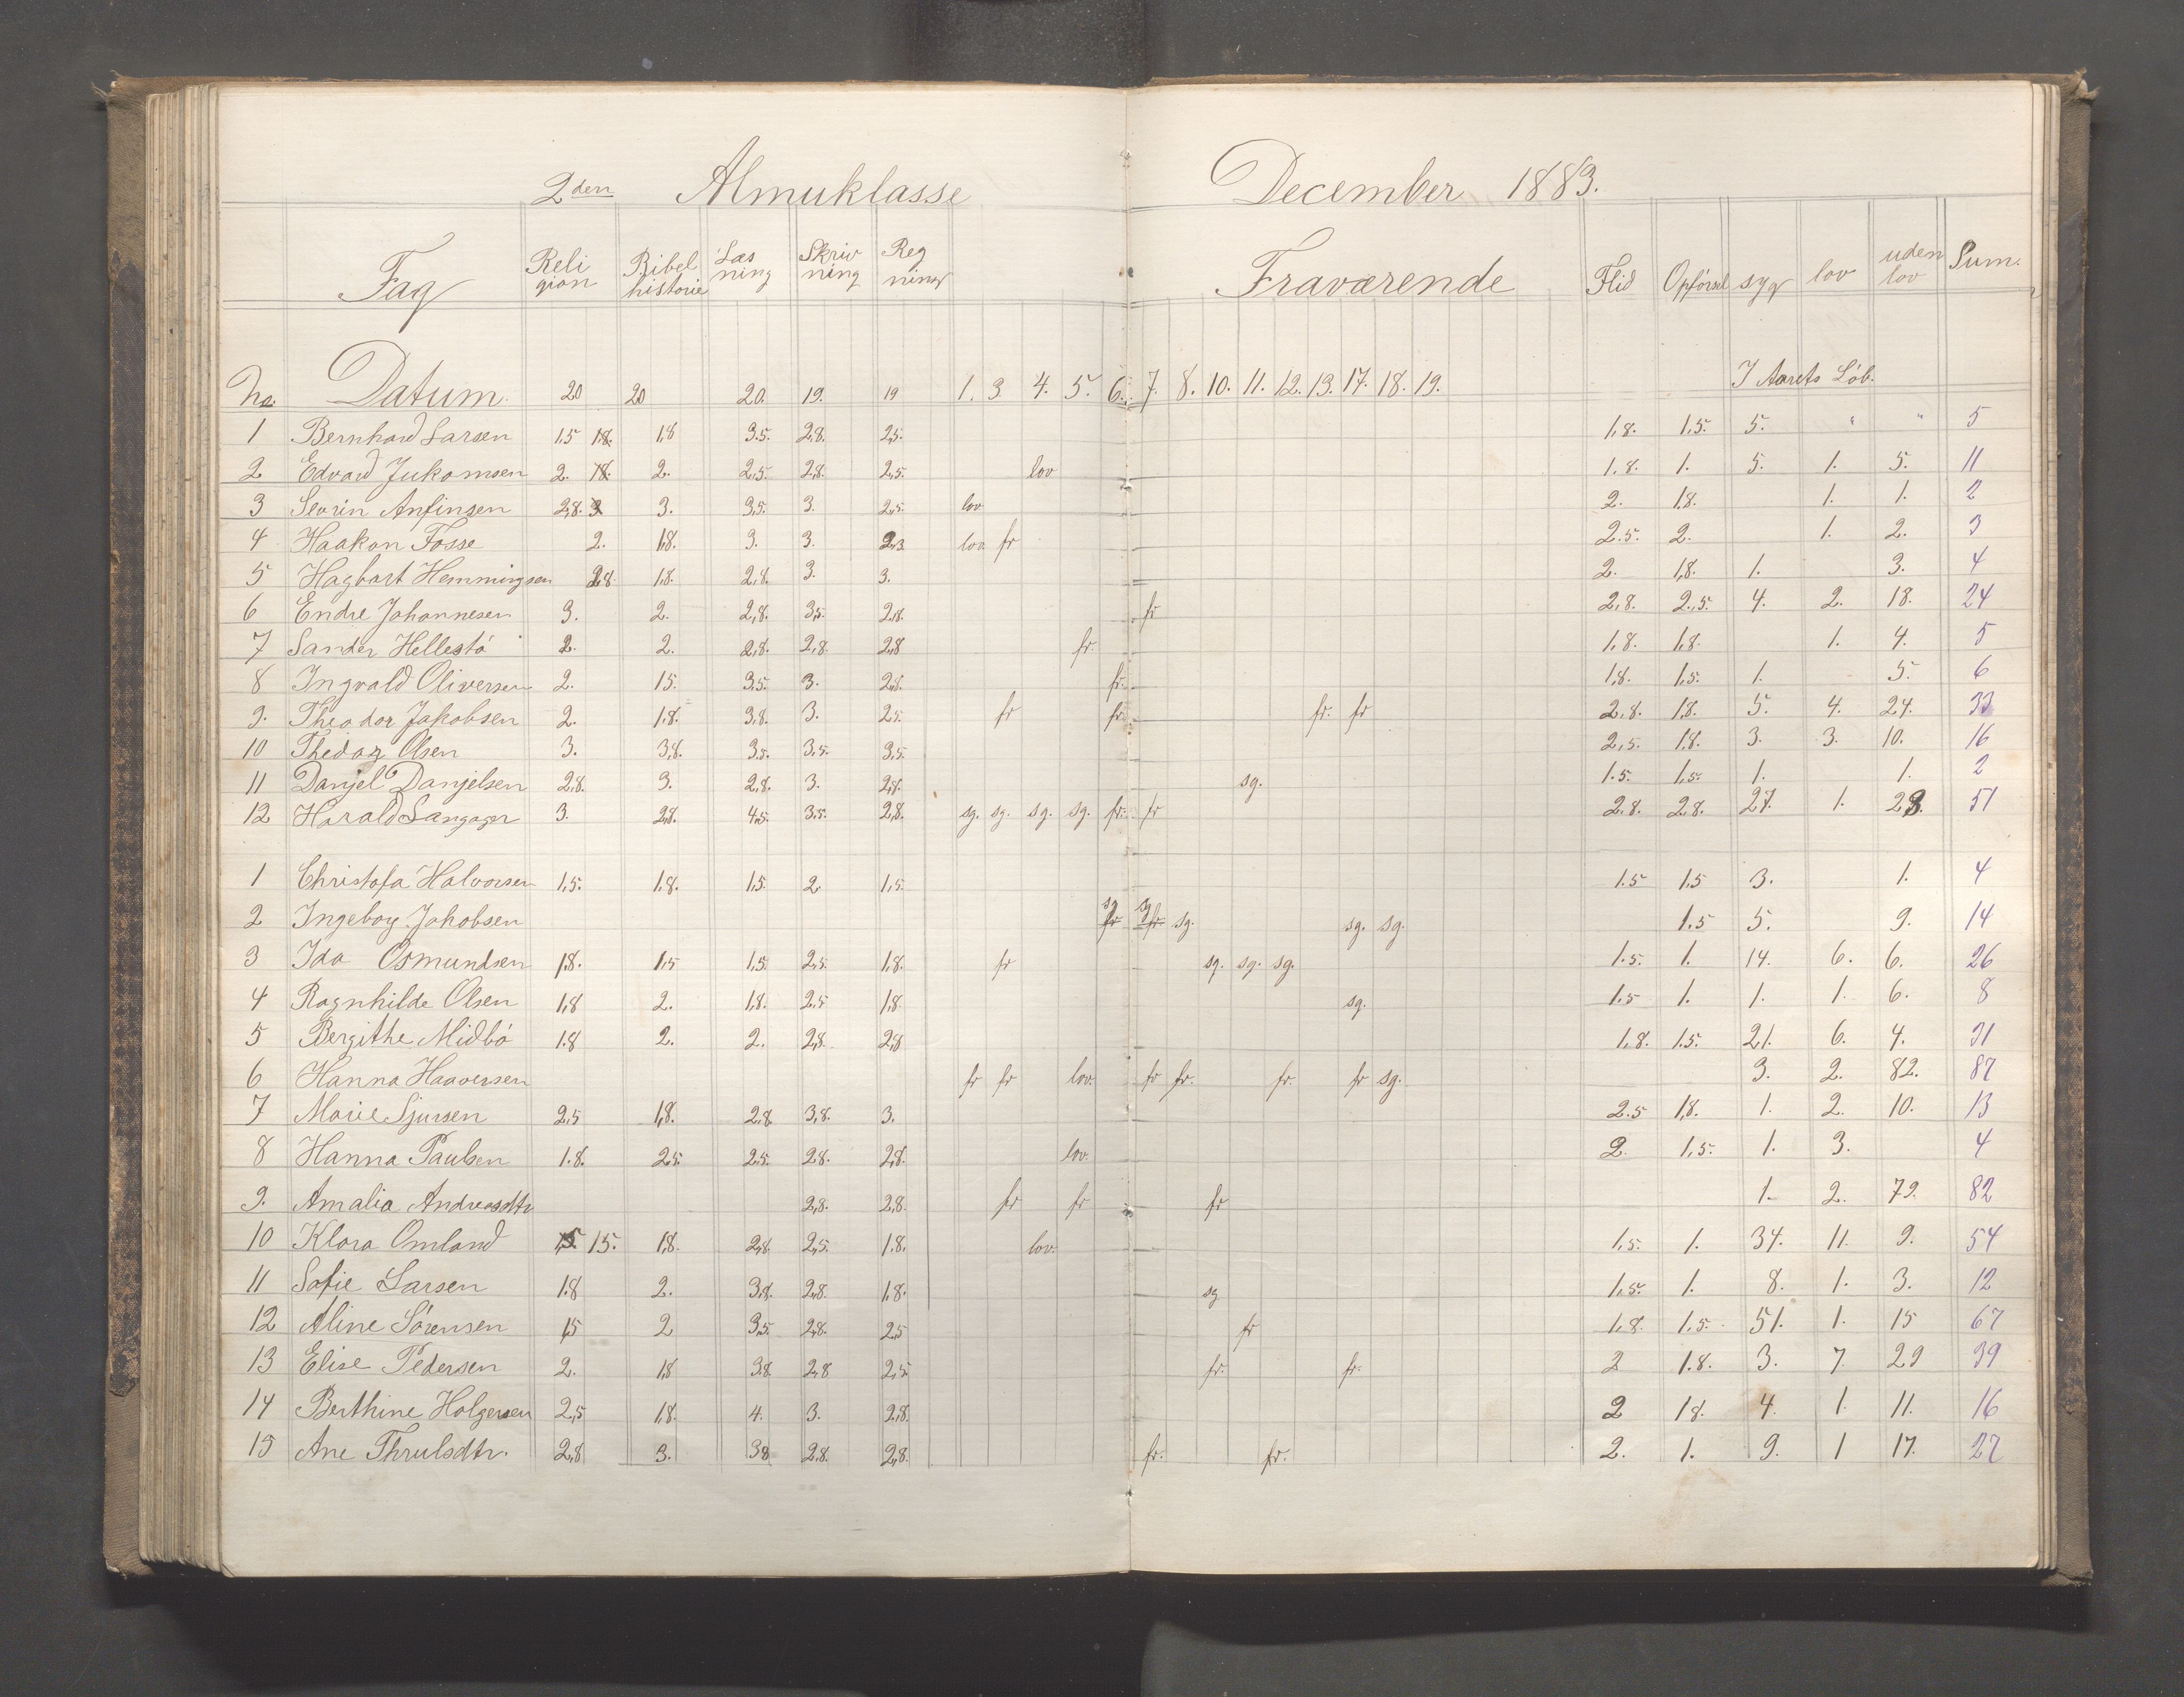 2den Almuklasse December 1883.
Fag Reli gion Bibel historie Læs ning Skriv ning Reg ning Fraværende Flid Opförsel syg lov uden lov Sum.
No. Datum. 20 20 20. 19. 19 1. 3 4. 5. 6. 7. 8. 10. 11. 12. 13. 17. 18. 19. I Aarets Löb.
1 Bernhard Larsen 1,5 1.8. 1,8 3.5. 2,8. 2,5. 1,8. 1,5. 5. " " 5
2 Edvard Jukomsen 2. 1.8. 2. 2,5. 2,8. 2,5. lov 1.8. 1. 5. 1. 5. 11
3 Sevrin Anfinsen 2,8. 3 3. 3,5. 3. 2,5. lov 2. 1.8. 1. 1. 2
4 Haakon Fosse 2. 1.8. 3. 3. 2,3. lov fr 2.5. 2. 1. 2. 3
5 Hagbart Hemmingsen 2.8. 1.8. 2,8. 3. 3. 2. 1,8. 1. 3. 4
6 Endre Johannesen 3. 2. 2,8. 3,5. 2.8. fr 2,8. 2.,5. 4. 2. 18. 24
7 Sander Hellestö 2. 2. 2,8. 2,8. 2,8 fr. 1,8. 1,8. 1. 4. 5
8 Ingvald Oliversen 2. 1.5. 3,5. 3. 2,8. fr. 1,8. 1,5. 1. 5. 6
9. Theodor Jakobsen 2. 1.8. 3,8. 3. 2,5. fr fr. fr. fr 2.8. 1.8. 5. 4. 24. 33
10 Thedor Olsen 3. 3,8. 3.5. 3,5. 3,5. 2,5. 1.8. 3. 3. 10. 16
11 Danjel Danjelsen 2,8. 3. 2,8. 3. 2,8. sg. 1.5. 1,5. 1. 1. 2
12 Harald Langager 3. 2,8. 4,5. 3,5. 2,8. sg. sg. sg. sg. fr. fr 2.8. 2.8. 27. 1. 23. 51
1 Christofa Halvorsen 1,5. 1.8. 1,5. 2. 1,5. 1.5 1.5 3. 1. 4
2 Ingeborg Jakobsen sg fr sg fr sg. sg. sg. 1.5 5. 9. 14
3 Ida Osmundsen 1.8. 1,5 1,5. 2,5. 1,8. fr sg. sg. sg. 1.5. 1. 14. 6. 6. 26
4 Ragnhilde Olsen 1,8 2. 1,8. 2.5 1,8 sg. 1.5 1. 1. 1. 6. 8
5 Bergithe Midbö 1.8 2. 2. 2,8. 2,8 1,8. 1.5. 21. 6. 4. 31
6 Hanna Haaversen fr fr lov. fr fr. fr. fr sg. 3. 2. 82. 87
7 Marie Sjursen 2,5 1,8. 2,8. 3,8. 3. 2.5 1,8. 1. 2. 10. 13
8 Hanna Paulsen 1.8. 2,5. 2,5. 2.8. 2,8. lov. 2. 1,5. 1. 3. 4
9. Amalia Andreasdtr 2,8. 2,8. fr fr fr 1. 2. 79. 82
10 Klara Omland 1,5. 1 5. 1,8. 2,8. 2,5. 1.8. lov. 1,5. 1. 34. 11. 9. 54
11 Sofie Larsen 1.8 2. 3,8. 2,8. 1,8. sg 1,5. 1. 8. 1. 3. 12
12 Aline Sörensen 1,5 2 3,5. 2,8. 2,5 fr 1,8. 1.5. 51. 1. 15 67
13 Elise Pedersen 2. 1,8 3.8. 2,8 2,5. fr. fr. 2 1.8. 3. 7. 29 39
14 Berthine Holgersen 2,5 1,8. 4. 3. 2,8. 2 1 8. 4. 1. 11. 16
15 Ane Thrulsdtr. 2,8 3. 3,8 2,8. 2,8. fr. fr. 2. 1. 9. 1 17. 27